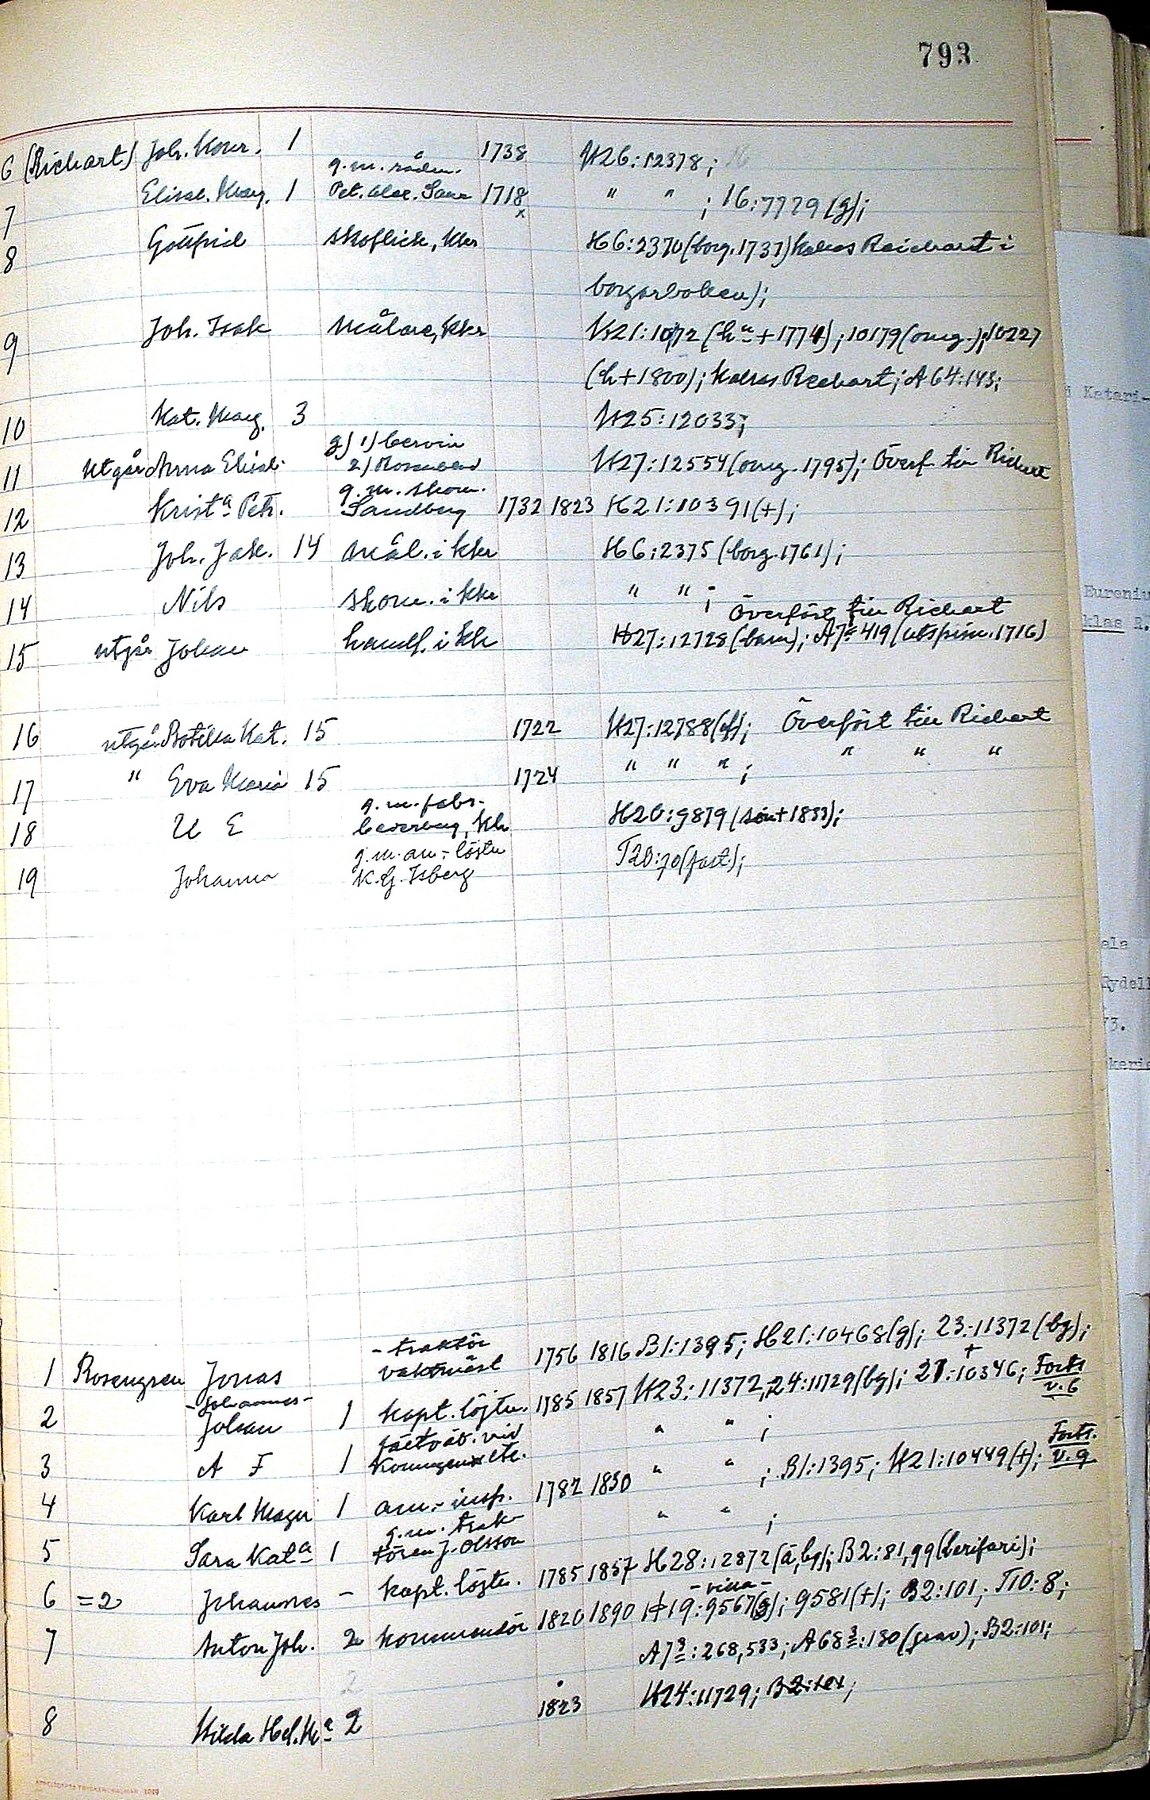 793
6 (Richart) Joh. Konr. 1 1738 H26:12378;
g.m. rådm.
7 Elisab. Marg. 1 Pet. Alex. 1718 x " " ; 16:7729 (g);
8 Gottfrid skoflick, Kkr H6:2370 (borg. 1737) kallas Reichart i
borgarboken);
9 Joh. Isak målare, Kkr H21:1072 (hn + 1774); 10179 (omg.); 10227
(h + 1800); kallas Rechart; A64:143;
10 Kat. Marg. 3 H25:12033;
g) 1)
11 utgår Anna Elisab. 2) H27:12554 (omg. 1795); Överf. till Richert
g.m. skom.
12 Krista Petr. Sandberg 1732 1823 H21:10391 (+);
13 Joh. Jak. 14 mål. i Kkr H6:2375 (borg. 1761);
14 Nils skom. i Kkr " " ;
Överfört till Richert
15 utgår Johan handl. i Kh H27:12728 (barn); A7a 419 (utspisn. 1716)
16 utgår Botilla Kat. 15 1722 H27:12788 (df); Överfört till Richert
17 " Eva Maria 15 1724 " " " ; " " "
g.m. fabr.
18 U E Cederberg, Kh H20:9879 (son + 1833);
g.m. am.-löjtn
19 Johanna K.G. Isberg T20:70 (fast);
- traktör
1 Rosengren Jonas vaktmäst 1756 1816 B1:1395; H21:10468 (g); 23:11372 (bg);
- Johannes -
2 Johan 1 kapt. löjtn. 1785 1857 H23:11372, 24:11729 (bg); 21:10346; Forts. v. 6
+
3 A F 1 " " ;
4 Karl Magn 1 am.-insp. 1782 1830 " " ; B1:1395; H21:10449 (+); Forts. v. 9
g.m. trak-
5 Sara Kata 1 tören J. Olsson " " ;
6 =2 Johannes - kapt. löjtn. 1785 1857 H28:12872 (ä, bg); B2:81, 99 (berifari);
- villa -
7 Anton Joh. 2 kommendör 1820 1890 H19:9567 (g); 9581 (+); B2:101; T10:8;
A7a:268, 533; A68a:130 (grav); B2:101;
8 Hilda Hel. Ma 2 1823 H24:11729; B2:101;